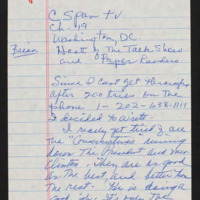 C Span TV
Ch. 19
Washington, DC
Brian
Host of the Talk Show
and Paper Readers
Since I cant get through
after 200 tries on the
phone 1-202-638-1111
I decided to write.
I really get tired of all
the "Conservatives" running
down the President and
. They are as good
as the best and better than
the rest. He is doing a
good job. it's only the